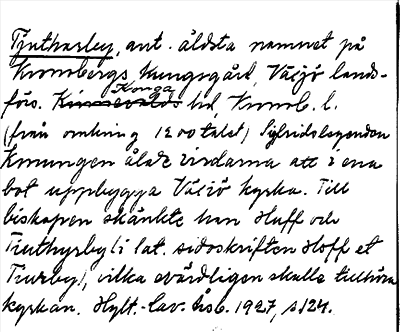 Tjutharley, ant. äldsta namnet på
Kronobergs kungsgård, Växjö lands-
förs. Kinnevalds Konga hd, Kronob. l.
(från omkring 1200 talet) Sigfridslegenden
Konungen ålade virdarna att i ena
bot uppbygga Växiö kyrka. Till
biskopen skänkte han Huff och
Tiuthyrby (i lat. sidoskriften Hoff et
Tiurby), vilka evärdligen skulle tillhöra
kyrkan. Hylt.-Cav. 1927, s 124.